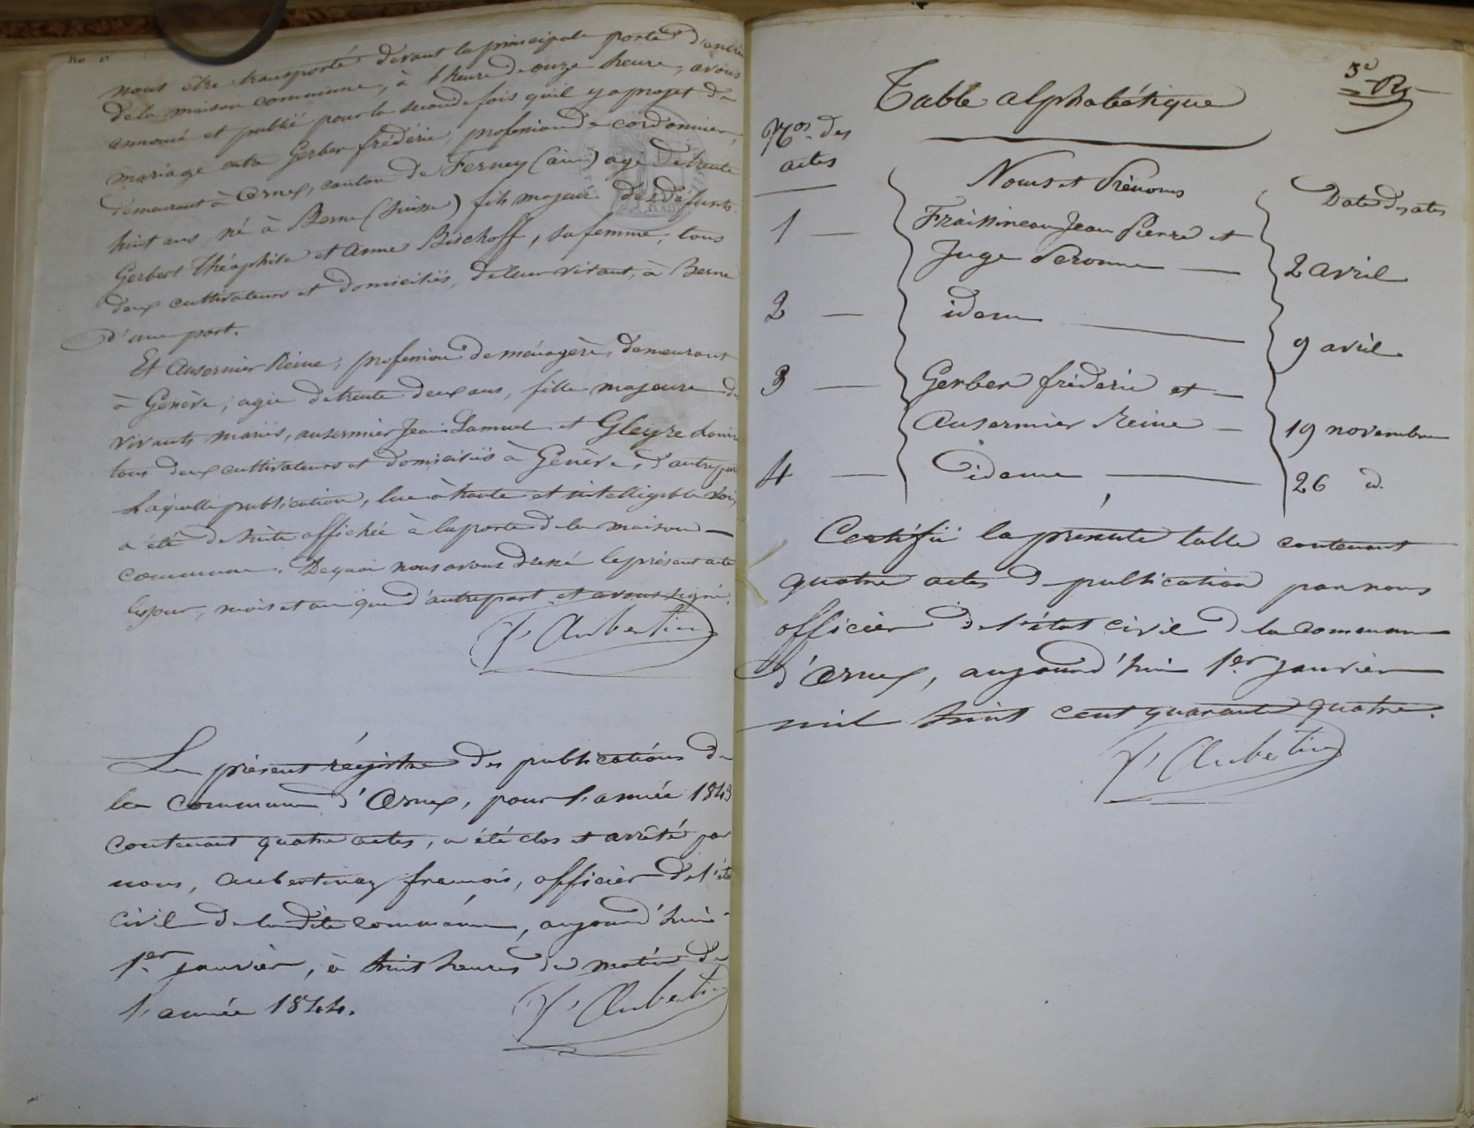 nous être transporté devant la principale porte d'entrée
de la maison commune, à l'heure de onze heure, avons
annoncé et publié pour la seconde fois qu'il y a projet de
mariage entre Gerber frédéric, profession de cordonnier,
demeurant à Ornex, canton de Ferney (ain) agé de trente
huit ans, né à Berne (Suisse) fils majeur des défunts
Gerbert Théophile et Anne Bischoff, sa femme, tous
deux cultivateurs et domiciliés, de leur vivant, à Berne
d'une part.
Et Ausermier Reine, profession de ménagère, demeurant
à Genève, agée de trente deux ans, fille majeure de
vivants mariés, ausermier Jean Samuel et Gleyre
tous deux cultivateurs et domiciliés à Genève, d'autre part
Laquelle publication, lue à haute et intelligible voix,
a été de suite affichée à la porte de la maison
commune. De quoi nous avons dressé le présent acte
les jour, mois et an que d'autre part et avons signé.
F. Aubertin
Le présent régistre des publications de
la commune d'Ornex, pour l'année 1843
contenant quatre actes, a été clos et arrêté par
nous, françois, officier de l'état
civil de la dite commune, aujourd'hui
1er janvier, à huit heures du matin de
l'année 1844.
F. Aubertin
3e
Table alphabétique
Nos des
actes
Noms et Prénoms
Date des actes
1 Fraissineau Jean Pierre et
Juge Peronne 2 avril
2 idem 9 avril
3 Gerber frédéric et
Ausermier Reine 19 novembre
4 idem 26 d
Certifié la présente table contenant
quatre actes de publication par nous
officier de l'état civil de la commune
d'Ornex, aujourd'hui 1er janvier
mil huit cent quarante quatre.
F. Aubertin